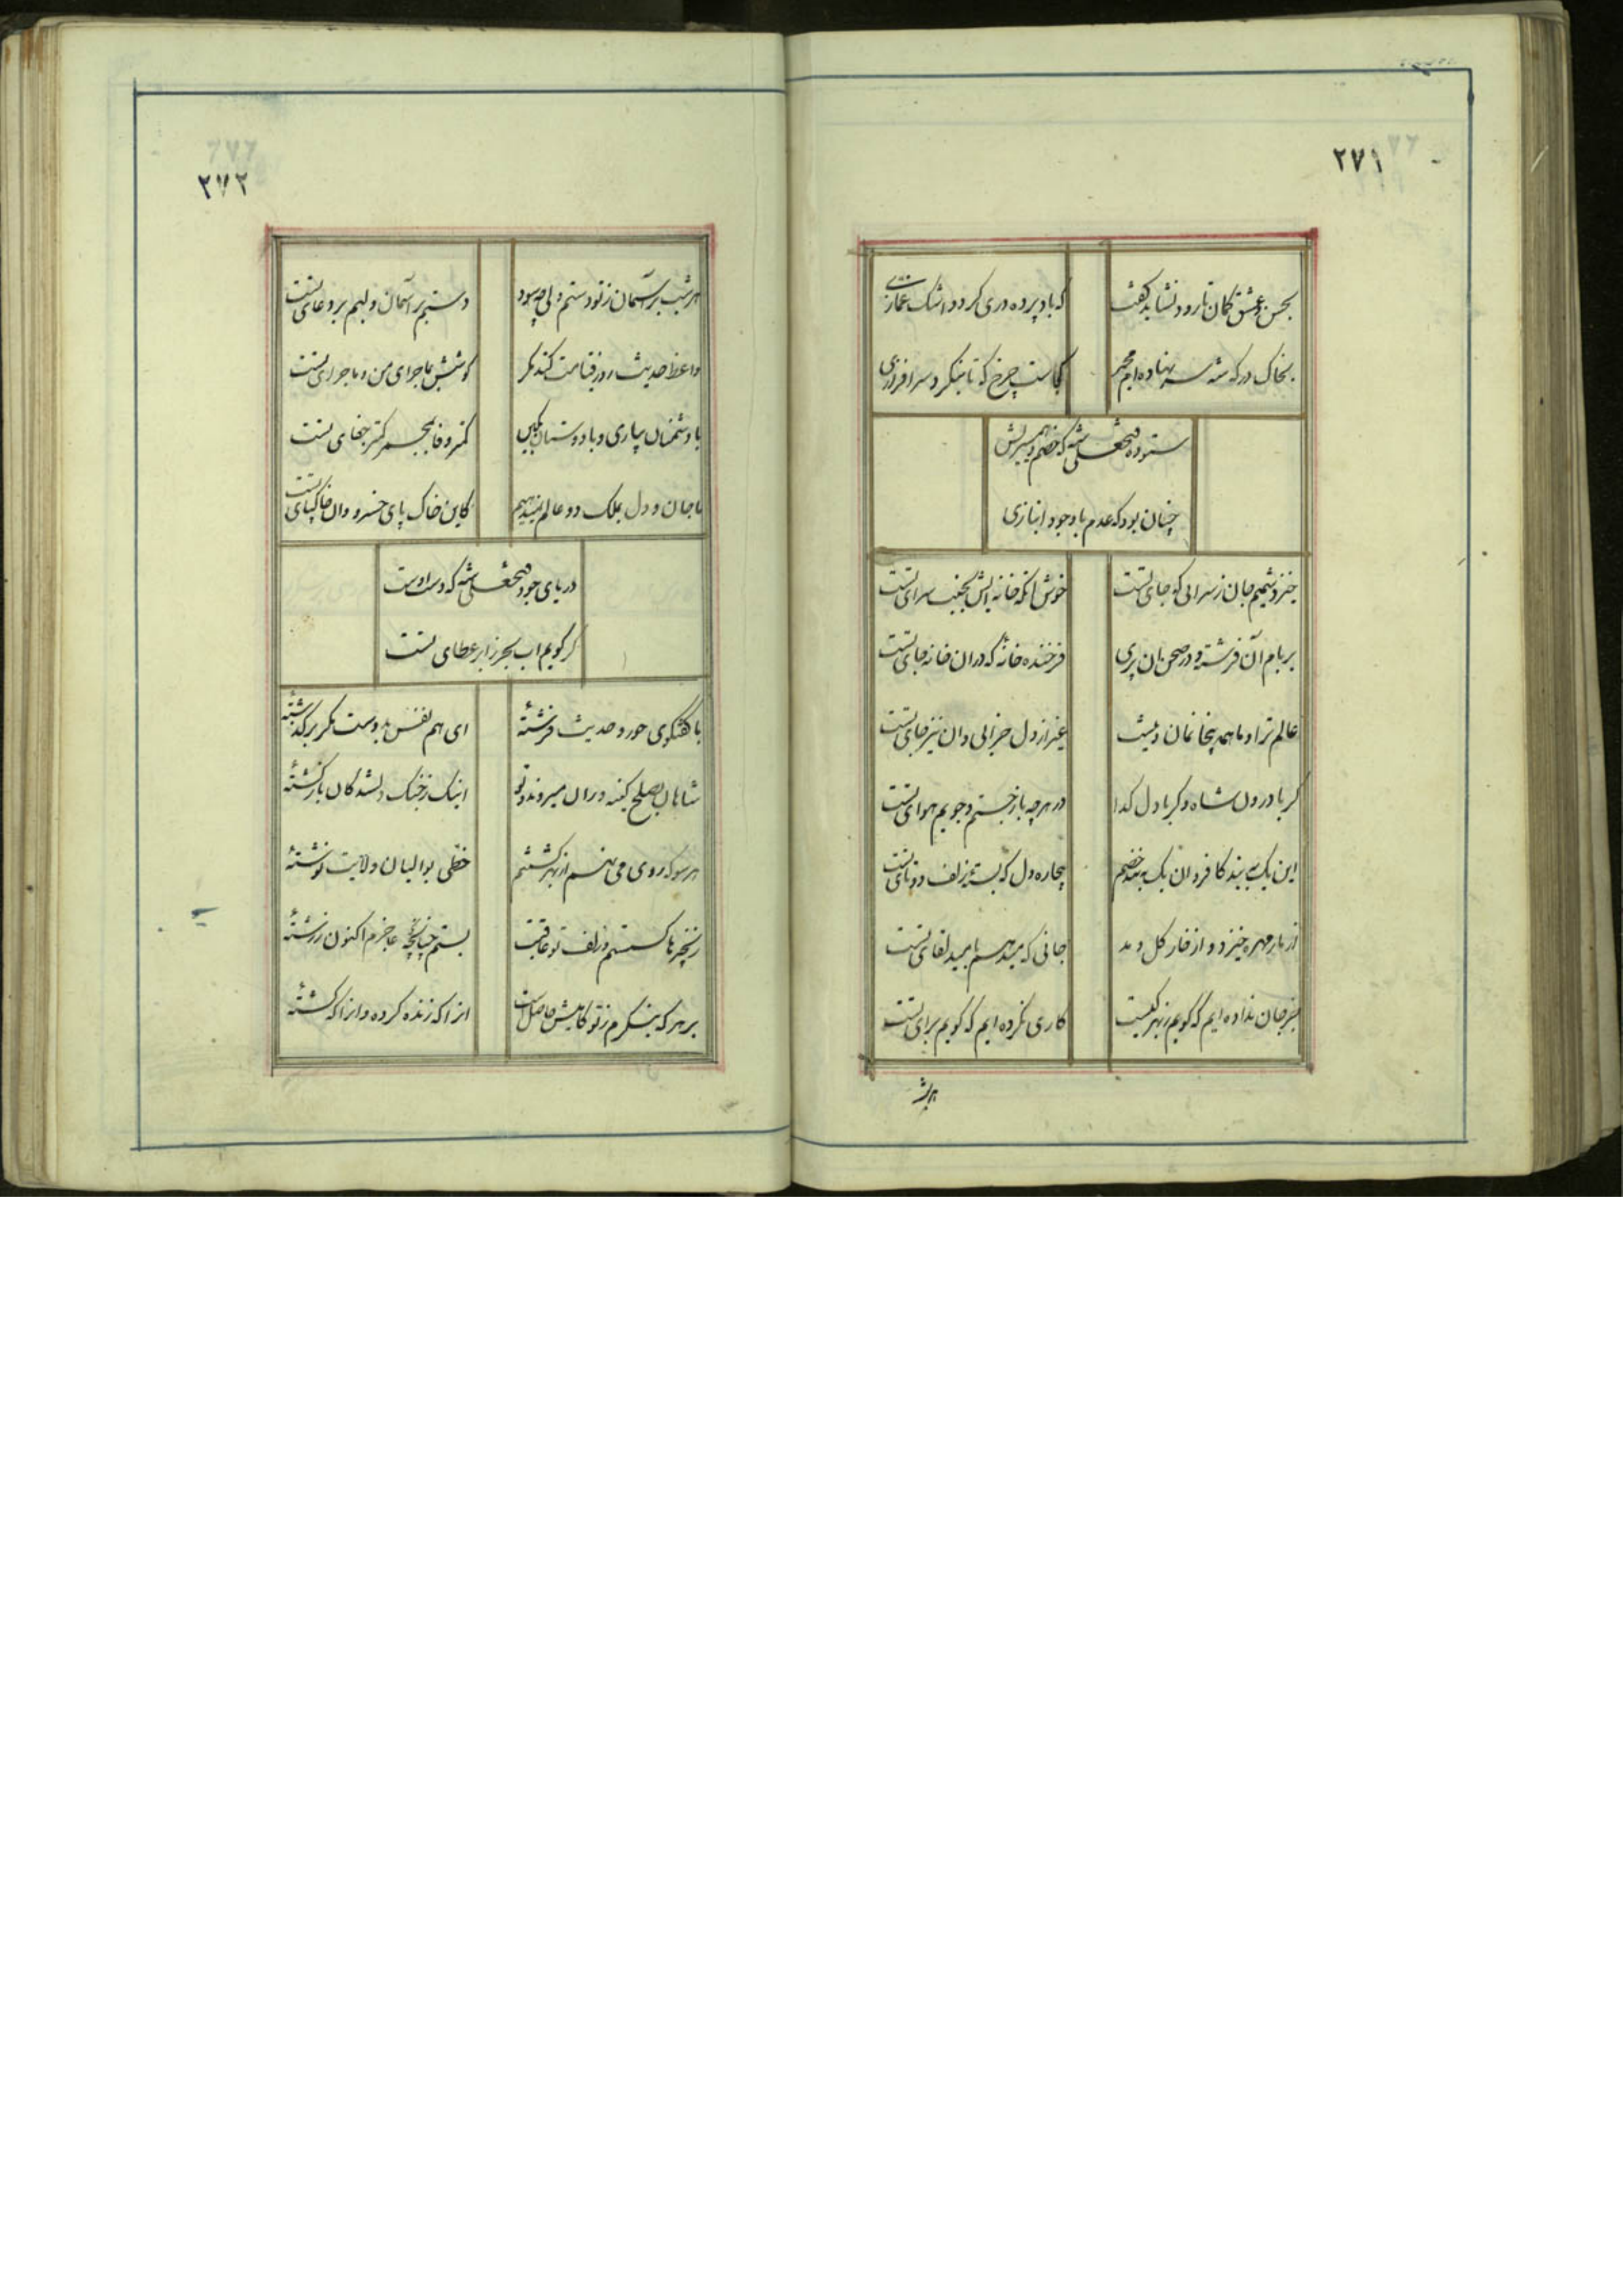 ۲۷۱
بحسن و عشق کمان تا رود نشاید گفت
که باد پرده دری کرد و اشک غمازی
بخاک درکه شه سر نهاده‌ام مجمر
کجاست چرخ که تا بنکرد سرافرازی
ستوده فتحعلی شه که خصم و همسریش
چنان بود که عدم با وجود انبازی
خیزد شمیم جان ز سرائی که جای تست
خوش آنکه خانه‌ایش بجنب سرای تست
بر بام آن فرشته و در صحن آن پری
فرخنده خانهٔ که در آن خانه جای تست
عالم ترا و ما همه بیخانمان و نیست
غیر از دل خرابی و آن نیز جای تست
گر با درون شاه و گر با دل گدا
در هر چه باز جستم و جویم هوای تست
این یک ببیند کافر و آن یک ببند خصم
بیچاره دل که بسته بزلف دوتای تست
از مار مهره خیزد و از خار گل دمد
جانی که میدهم بامید لقای تست
جز جان نداده‌ایم که گویم ز بهر کیست
کاری نکرده‌ایم که گویم برای تست
هر شب
۲۷۲
هر شب بر آسمان ز تو دستم ولی چه سود
دستم بر آسمان و لبم بر دعای تست
واعظ حدیث روز قیامت کند مگر
گوشش بماجرای من و ماجرای تست
با دشمنان بیاری و با دوستان بکین
کمتر وفا بمجمر کمتر جفای تست
با جان و دل بملک دو عالم نمیدهیم
کاین خاک پای خسرو و آن خاکپای تست
دریای جود فتحعلی شه که دست اوست
گر گویم ابر بحر ز ابر عطای تست
با گفتگوی حور و حدیث فرشتهٔ
ای هم نفس بدوست مگر برگذشتهٔ
شاهان بصلح کینه‌وران میروند و تو
اینک ز جنگ دلشدگان بازگشتهٔ
هر سو که روی می‌نهم از بهر کشتنم
خطی بوالیان ولایت نوشتهٔ
زنجیرها گسستم و زلف تو عاقبت
بستم چنانچه عاجزم اکنون ز رشتهٔ
بر هر که بنگرم ز تو کامیش حاصل است
آنرا که زنده کرده و آنرا که کشتهٔ